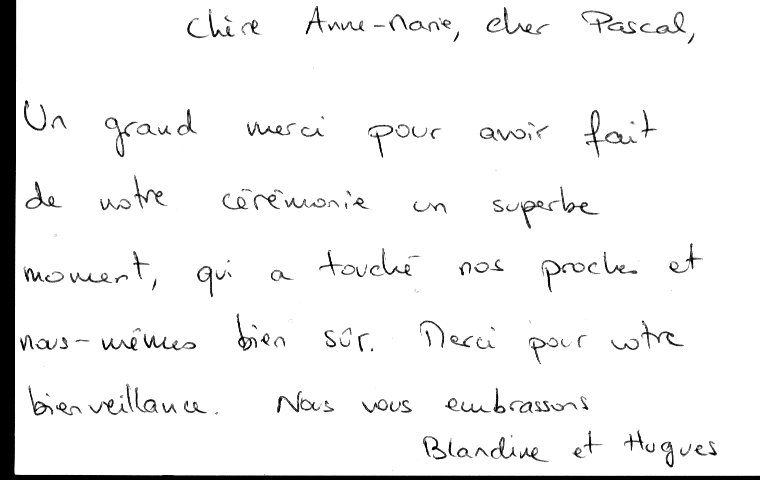 Chère Anne-Marie, cher Pascal,
Un grand merci pour avoir fait
de notre cérémonie un superbe
moment, qui a touché nos proches et
nous-mêmes bien sûr. Merci pour votre
bienveillance. Nous vous embrassons
Blandine et Hugues